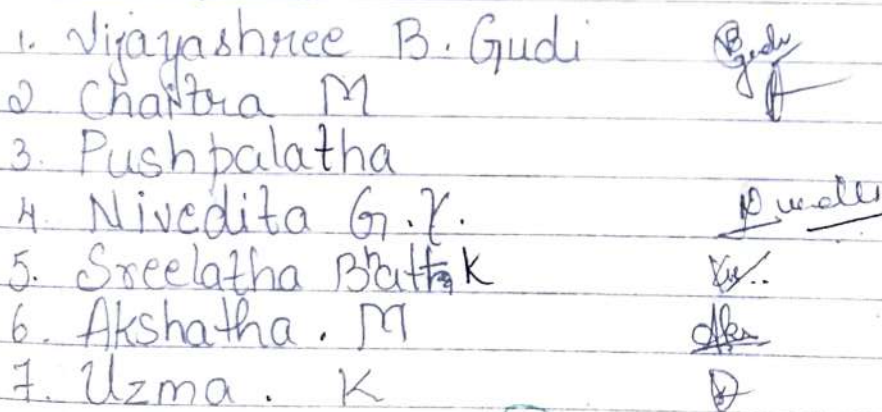 1. Vijayashree B. Gudi
2 Chaitra M
3. Pushpalatha
4. Nivedita G.Y.
5. Sreelatha Bhatt K
6. Akshatha . M
7. Uzma . K